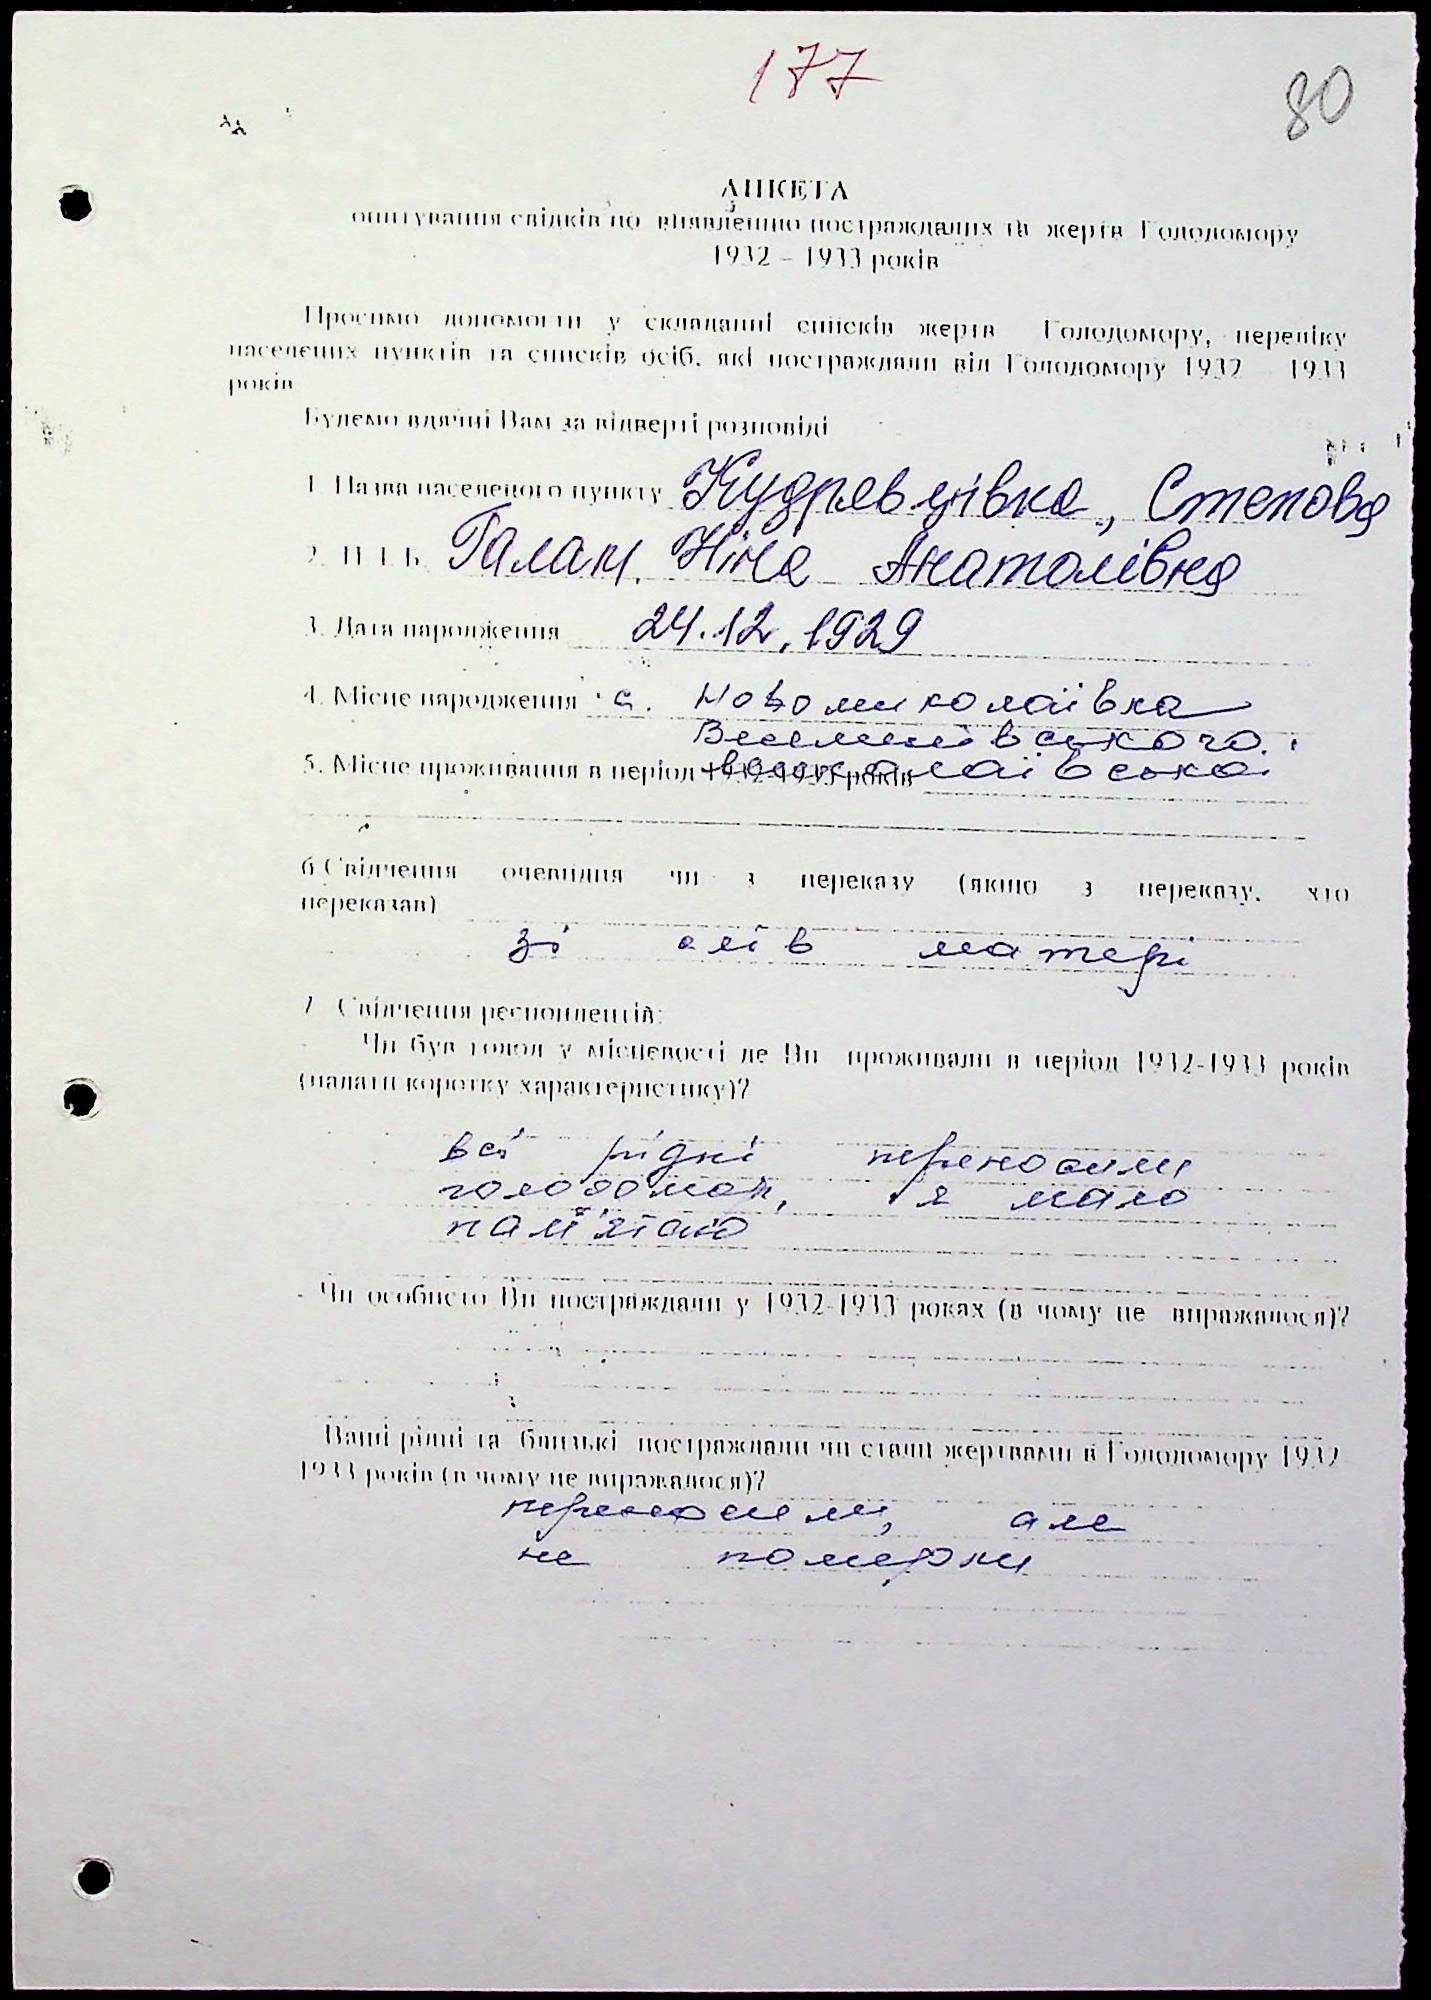 177
80
АНКЕТА
опитування свідків по виявленню постраждалих та жертв Голодомору
1932 – 1933 років
Просимо допомогти у складанні списків жертв Голодомору, переліку
населених пунктів та списків осіб, які постраждали від Голодомору 1932 – 1933
років
Будемо вдячні Вам за відверті розповіді
1. Назва населеного пункту Кудрявцівка, Степова
2. П.І.Б. Галан Ніна Анатоліївна
3. Дата народження 24.12.1929
4. Місце народження с. Новомиколаївка
5. Місце проживання в період 1932-1933 років Миколаївської
6. Свідчення очевидця чи з переказу (якщо з переказу, хто
переказав)
зі слів матері
7. Свідчення респондентів:
Чи був голод у місцевості де Ви проживали в період 1932-1933 років
(надати коротку характеристику)?
всі рідні переносили
голодомор, я мало
пам'ятаю
Чи особисто Ви постраждали у 1932-1933 роках (в чому це виражалося)?
Ваші рідні та близькі постраждали чи стали жертвами в Голодомору 1932
1933 років (в чому це виражалося)?
переносили, але
не померли